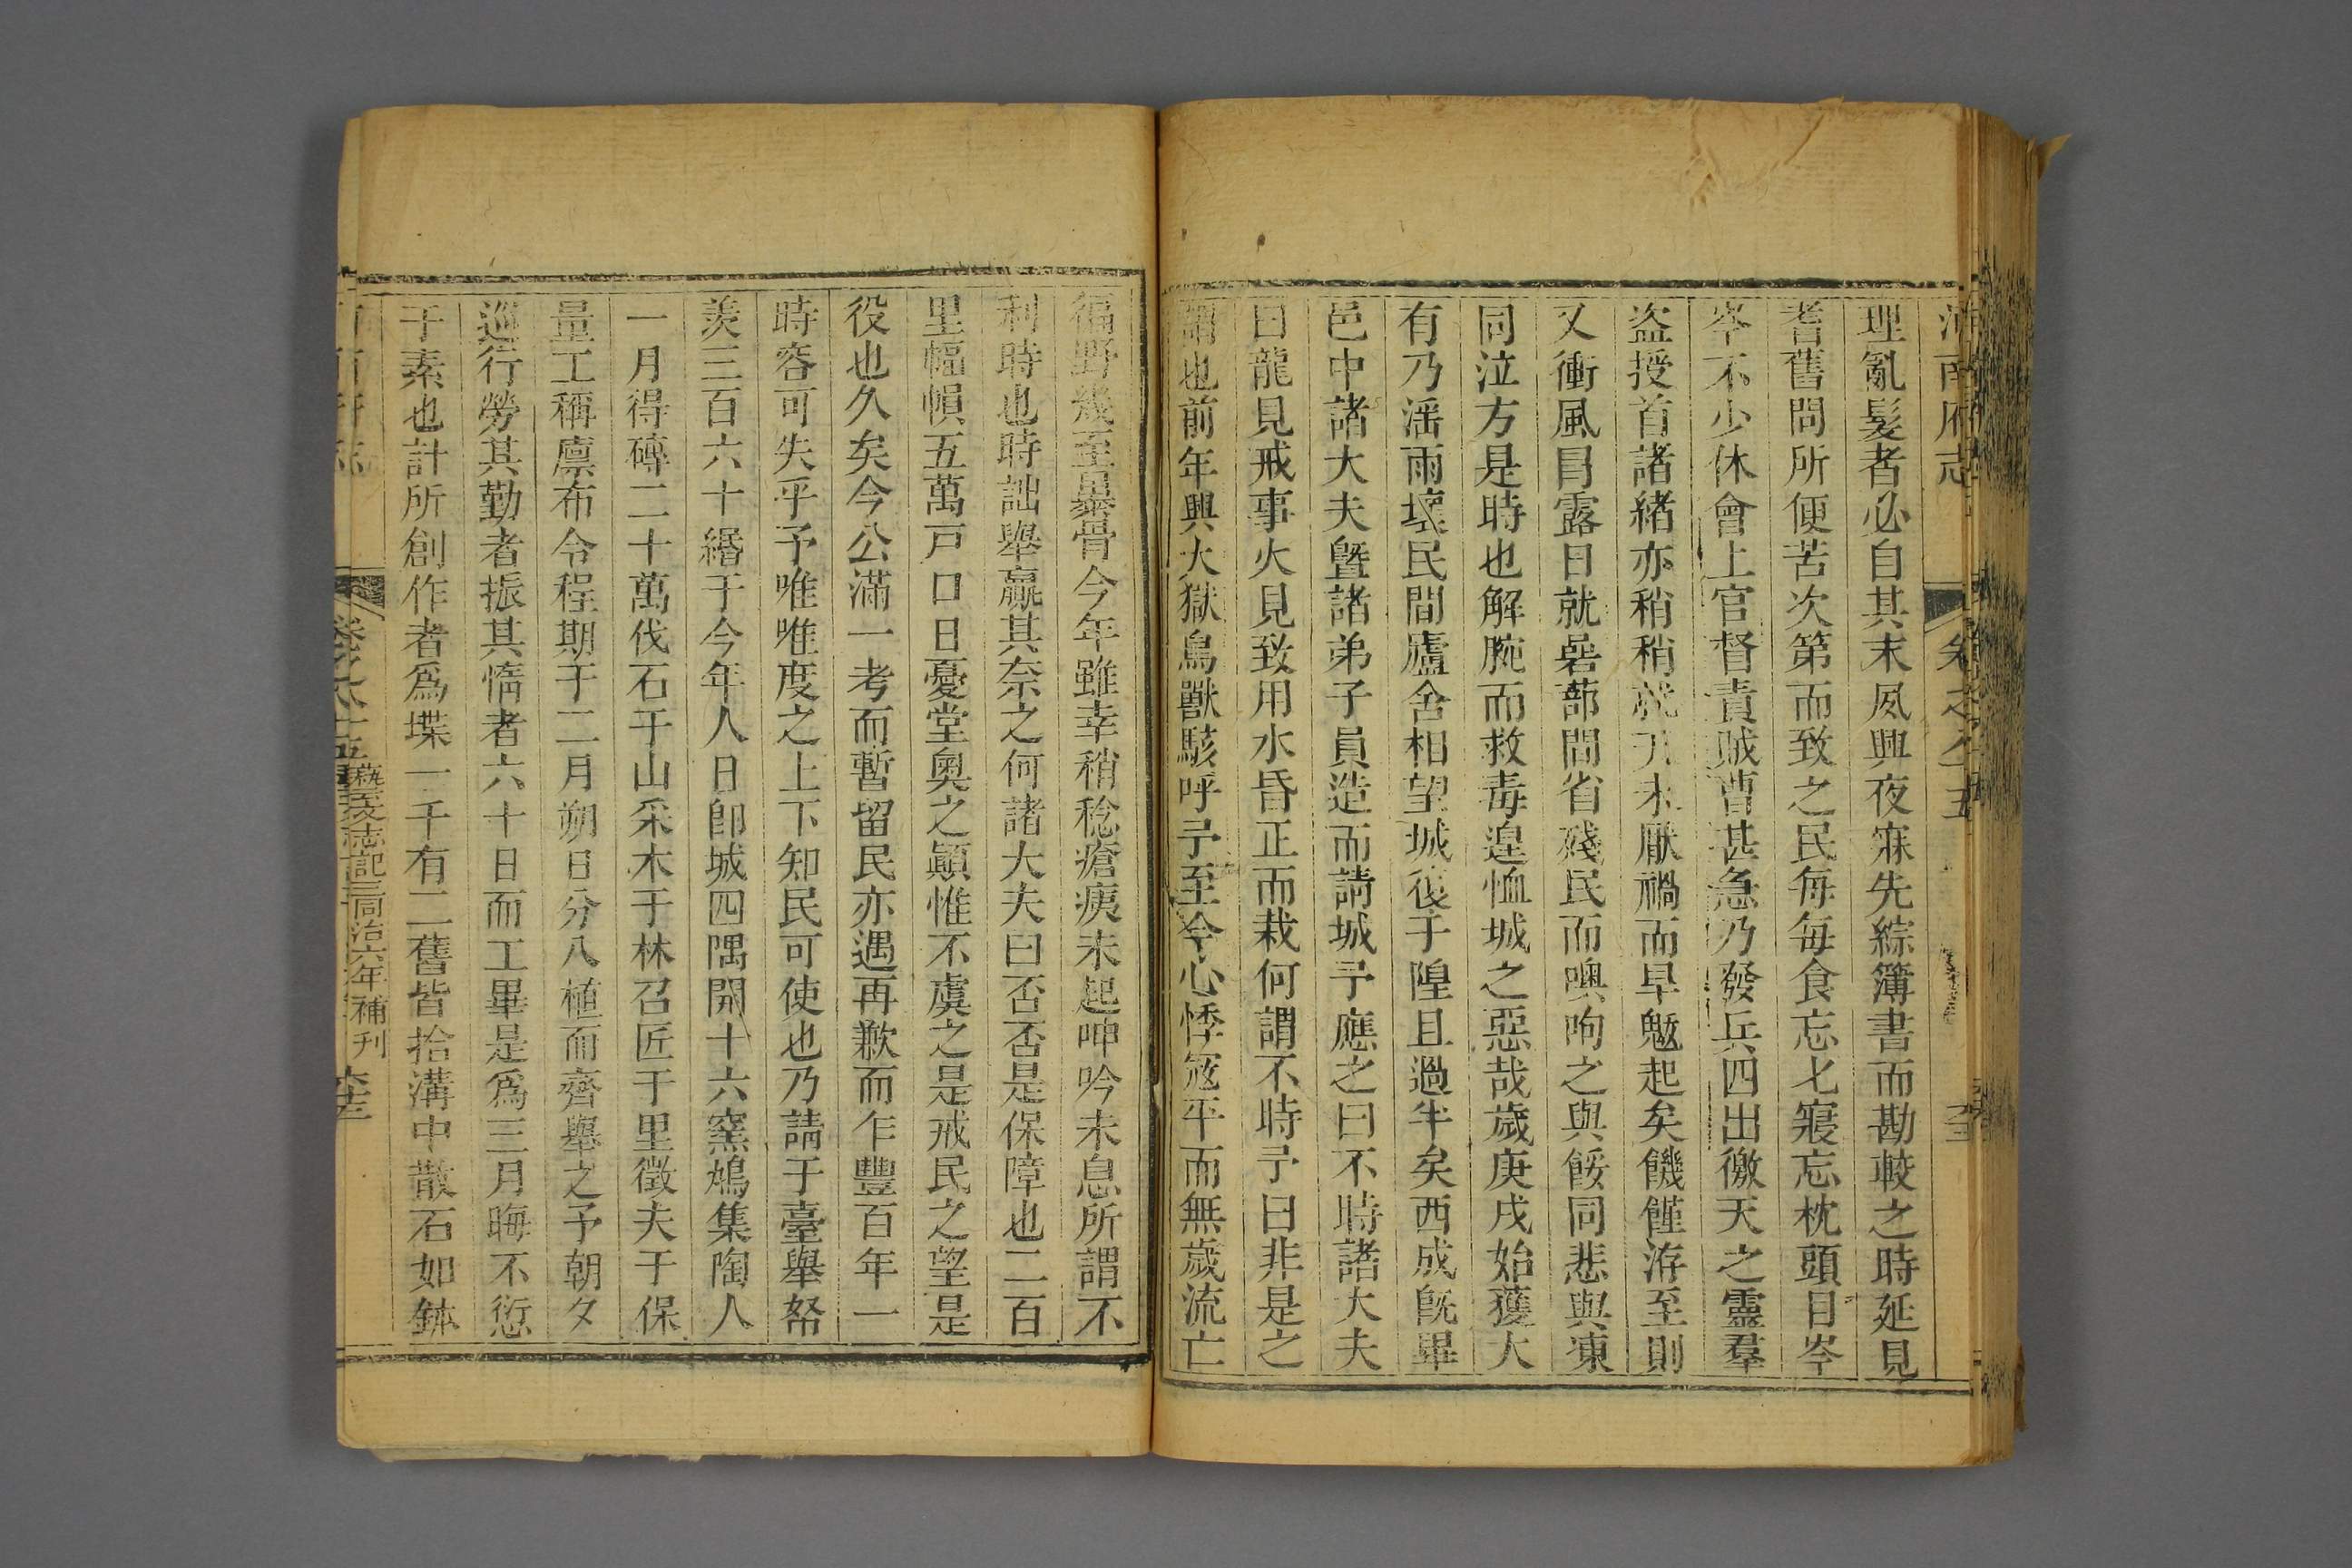 河南府志
理亂髮者必自其末夙興夜寐先綜簿書而勘較之時延見
耆舊問所便苦次第而致之民每每食忘匕寢忘枕頭日岑
岑不少休會上官督責賊曹甚急乃發兵四出徼天之靈羣
盜授首諸緒亦稍稍就刀未厭禍而旱魃起矣饑饉洊至則
又衝風冒露日就礐蔀間省殘民而噢咻之與餒同悲與凍
同泣方是時也解腕而救毒遑恤城之惡哉歲庚戌始獲大
有乃滛雨壞民間廬舍相望城復于隍且過半矣西成旣畢
邑中諸大夫曁諸弟子員造而請城予應之曰不時諸大夫
曰龍見戒事火見致用水昏正而栽何謂不時予曰非是之
謂也前年興大獄鳥獸駭呼予至今心悸𡨥平而無歲流亡
徧野幾至暴骨今年雖幸稍稔瘡痍未起呻吟未息所謂不
利時也時詘舉贏其奈之何諸大夫曰否否是保障也二百
里幅幀五萬戸口日憂堂奧之顚惟不虞之是戒民之望是
役也久矣今公滿一考而暫留民亦遇再歉而乍豐百年一
時容可失乎予唯唯度之上下知民可使也乃請于臺舉帑
羨三百六十緡于今年人日卽城四隅開十六窯鳩集陶人
一月得磚二十萬伐石于山采木于林召匠于里徵夫于保
量工稱廩布令程期于二月朔日分八植而齊舉之予朝夕
巡行勞其勤者振其惰者六十日而工畢是爲三月晦不愆
于素也計所創作者爲堞一千有二舊皆拾溝中散石如鉢
藝文志記三同治六年補刊